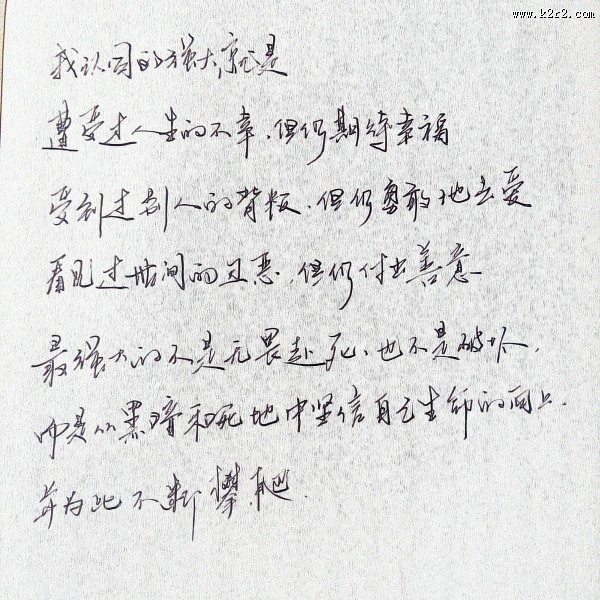 www.k2r2.com
我认同的强大,就是
遭受过人生的不幸,但仍期待幸福
受到过别人的背叛,但仍勇敢地去爱
看见过世间的丑恶,但仍付出善意
最强大的不是无畏赴死、也不是破坏,
而是从黑暗和死地中坚信自己生命的向上,
并为此不断攀爬.